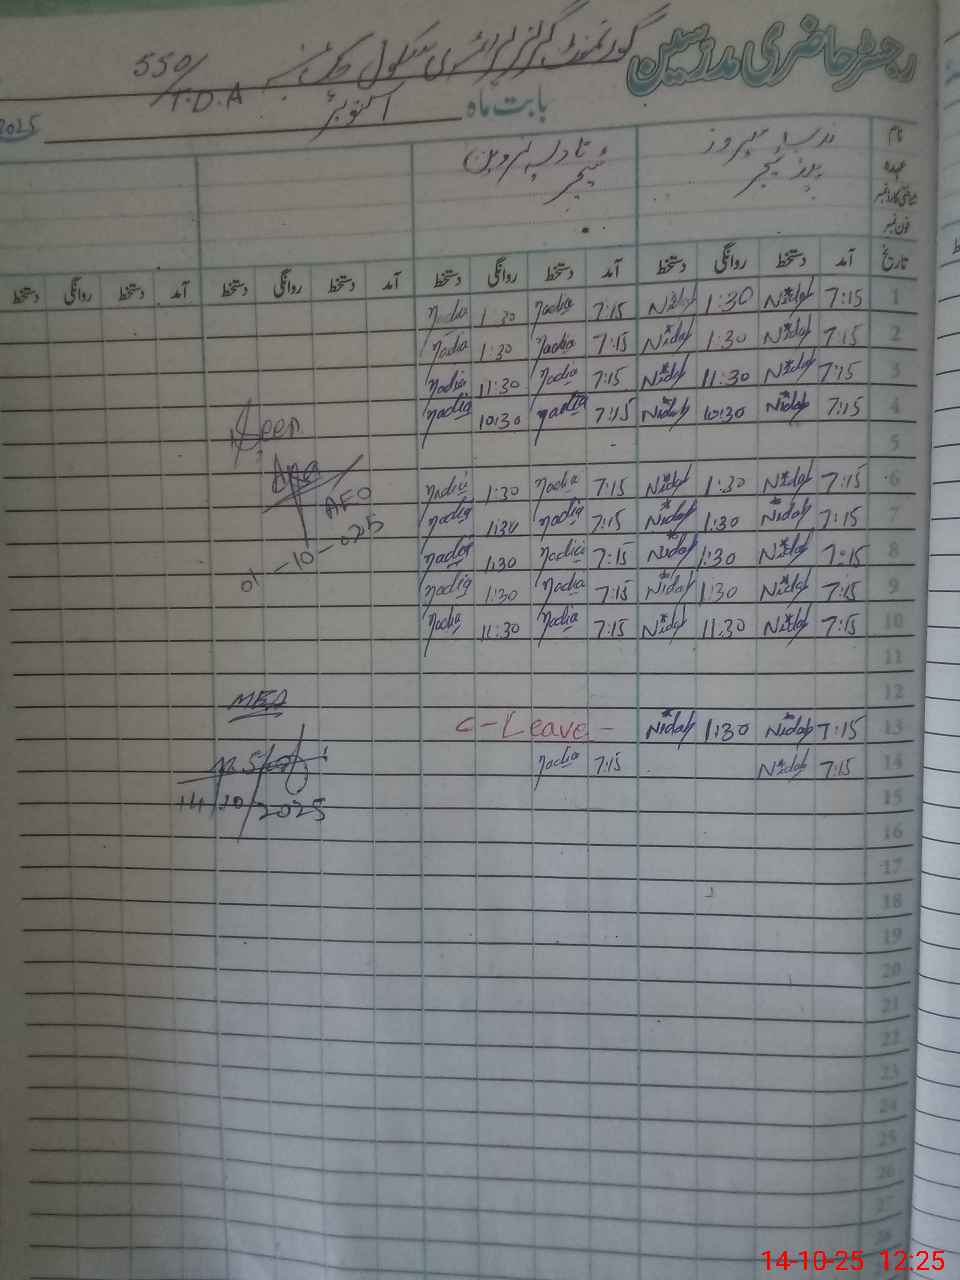 رجسٹر حاضری مدرسین گورنمنٹ گرلز پرائمری سکول چک نمبر 550/T.D.A
بابت ماہ اکتوبر 2025
نام
عہدہ ٹیچر
فون نمبر
تاریخ آمد دستخط روانگی دستخط آمد دستخط روانگی دستخط آمد دستخط روانگی دستخط آمد دستخط روانگی دستخط
1 7:15 Nidap 1:30 Nidap 7:15 Nadia 1:30 Nadia
2 7:15 Nidap 1:30 Nidap 7:15 Nadia 1:30 Nadia
3 7:15 Nidap 11:30 Nidap 7:15 Nadia 11:30 Nadia
4 7:15 Nidap 10:30 Nidap 7:15 Nadia 10:30 Nadia
Seen
5
6 7:15 Nidap 1:30 Nidap 7:15 Nadia 1:30 Nadia
AEO
7 7:15 Nidap 1:30 Nidap 7:15 Nadia 1:30 Nadia
01-10-025
8 7:15 Nidap 1:30 Nidap 7:15 Nadia 1:30 Nadia
9 7:15 Nidap 1:30 Nidap 7:15 Nadia 1:30 Nadia
10 7:15 Nidap 11:30 Nidap 7:15 Nadia 11:30 Nadia
11
12
MEA
13 7:15 Nidap 1:30 Nidap C-Leave-
14 7:15 Nidap 7:15 Nadia
14/10/2025
15
16
17
18
19
20
21
22
23
24
25
26
27
28
14-10-25 12:25